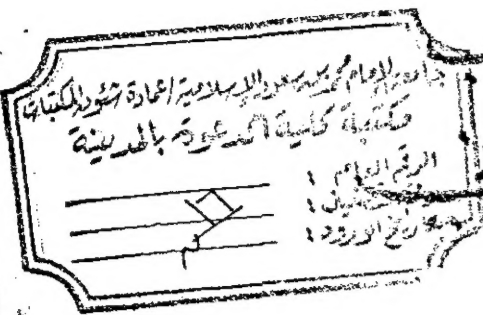 جامعة الإمام محمد بن سعود الإسلامية / عمادة شئون المكتبات
مكتبة كلية الدعوة بالمدينة
الرقم العام :
تاريخ الورود :